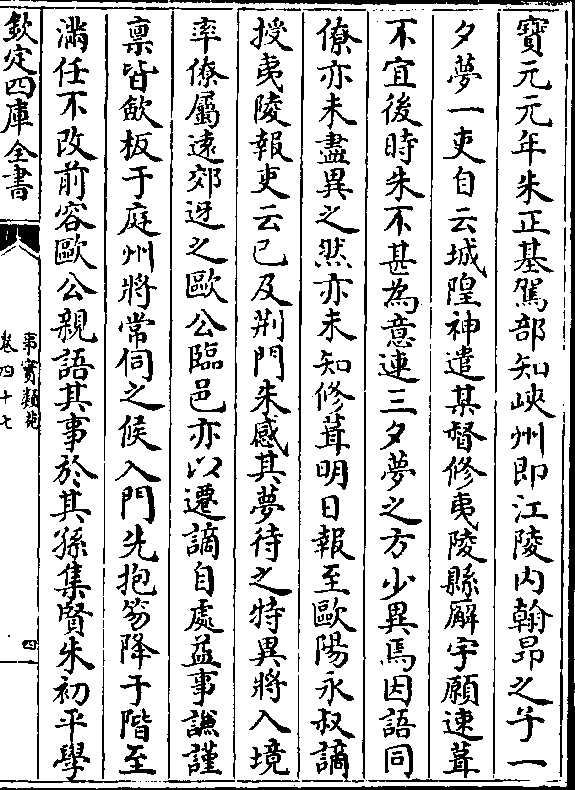 寶元元年朱正基駕部知峽州即江陵内翰昂之子一
夕夢一吏自云城隍神遣某督修夷陵縣廨宇願速葺
不宜後時朱不甚為意連三夕夢之方少異焉因語同
僚亦未盡異之然亦未知修葺明日報至歐陽永叔謫
授夷陵報吏云已及荆門朱感其夢待之特異將入境
率僚屬遠郊迓之歐公臨邑亦以遷謫自處益事謙謹
禀皆斂板于庭州將常伺之候入門先抱笏降于階至
滿任不改前容歐公親語其事於其孫集賢朱初平學
欽定四庫全書
事實類苑
卷四十七
四